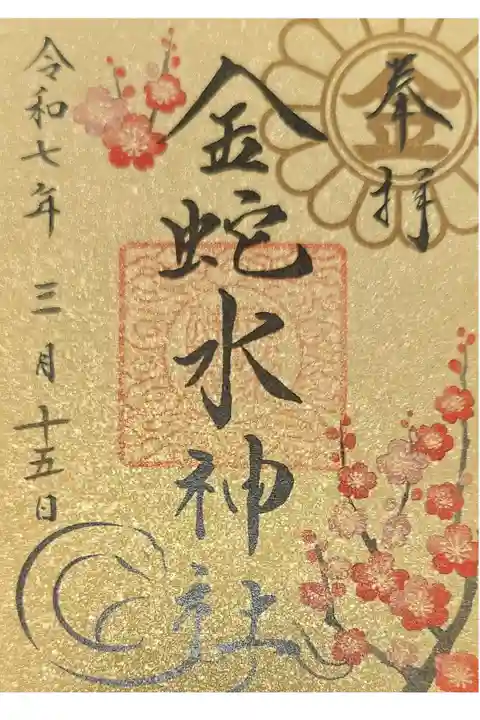 奉拝
金蛇水神社
令和七年 三月 十五日